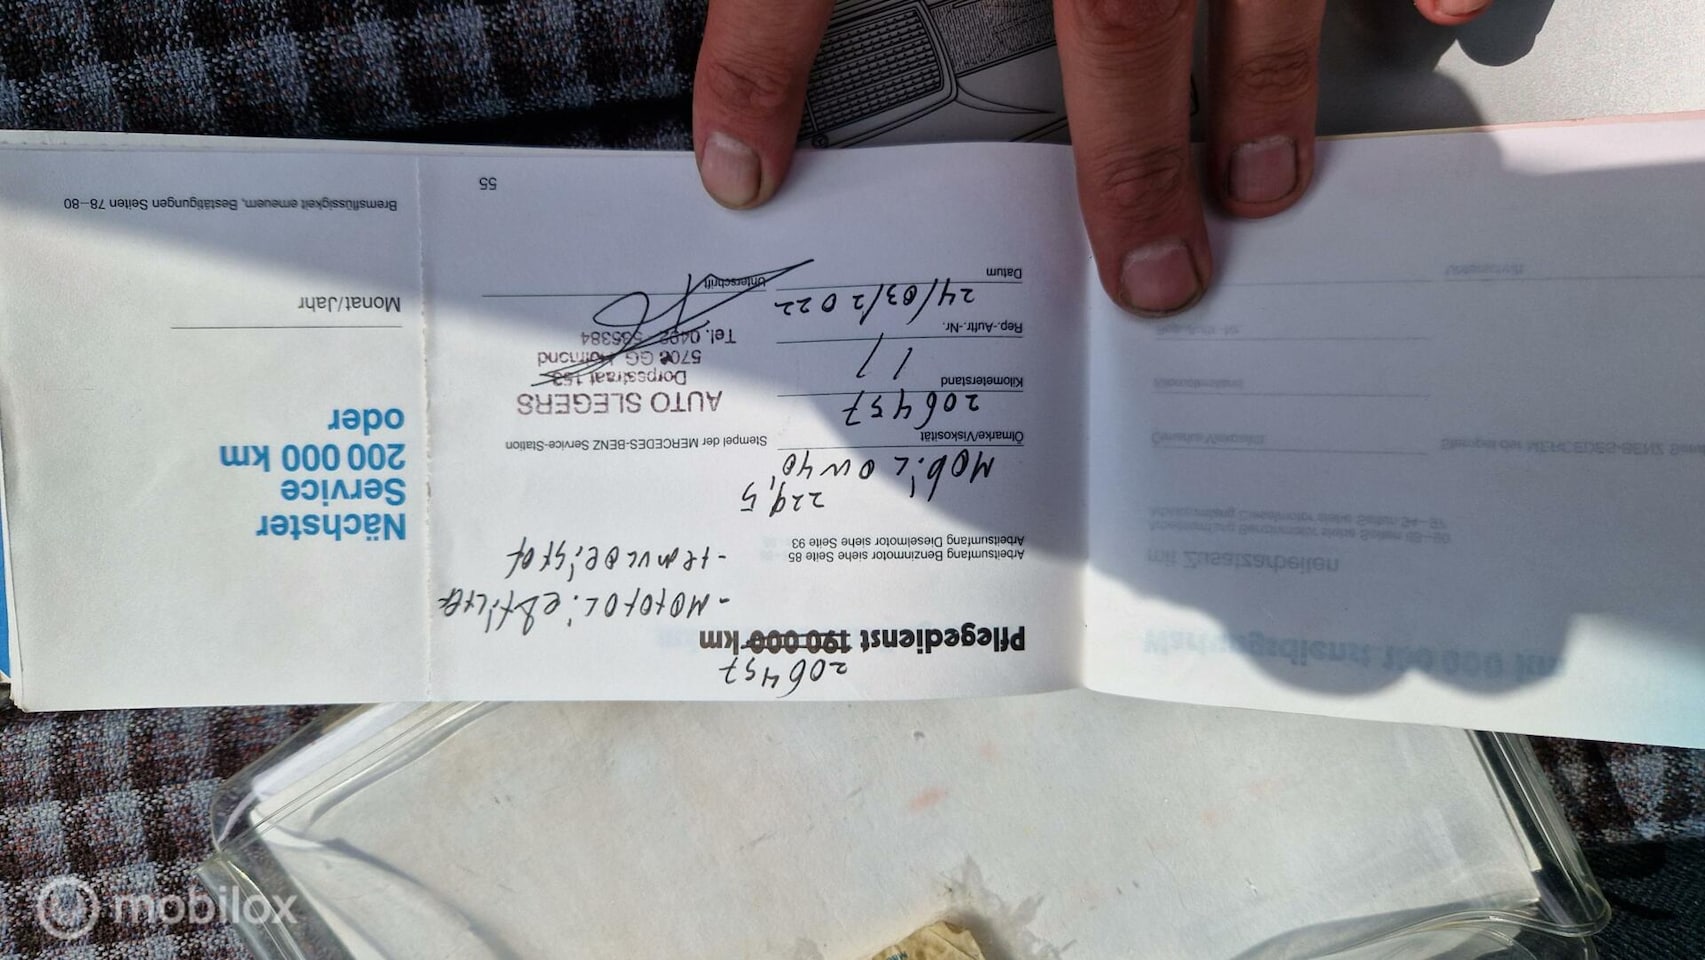 206457
Pflegedienst 190 000 km
- MOTOROLiE &filter
- remvloeistof
Arbeitsumfang Benzinmotor siehe Seite 85
Arbeitsumfang Dieselmotor siehe Seite 93
229,5
MObiL 0W40
Ölmarke/Viskosität
206457
Kilometerstand
Rep.-Auftr.-Nr.
24/03/2022
Datum
Stempel der MERCEDES-BENZ Service-Station
AUTO SLEGERS
Dorpsstraat 153
5708 GG Helmond
Tel. 0492
Unterschrift
55
Nächster
Service
200 000 km
oder
Monat/Jahr
Bremsflüssigkeit erneuern, Bestätigungen Seiten 78–80
mobilox